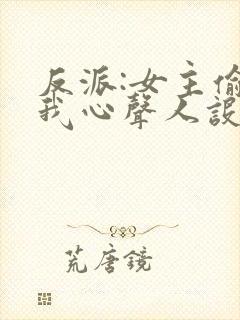 反派:女主偷
我心聲人設
荒唐鏡